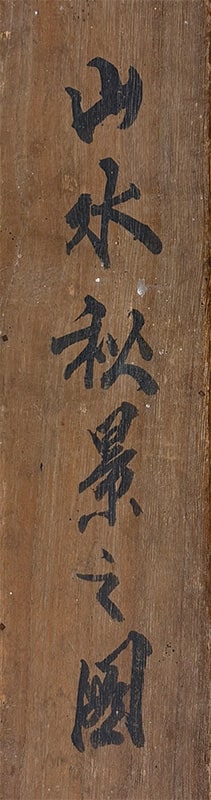 山水秋景之圖